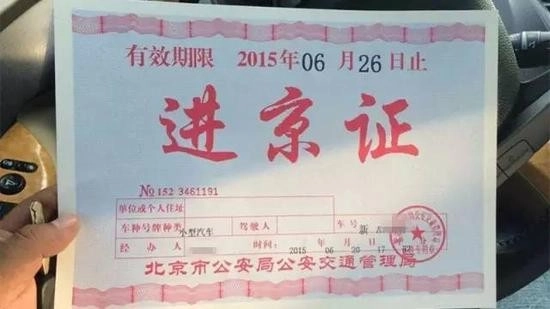 有效期限 2015年06月26日止
进京证
No 152 3461191
单位或个人住址
车种号牌种类 小型汽车 驾驶人 车号 新A
经办人 时间: 2015 06 20 17
北京市公安局公安交通管理局